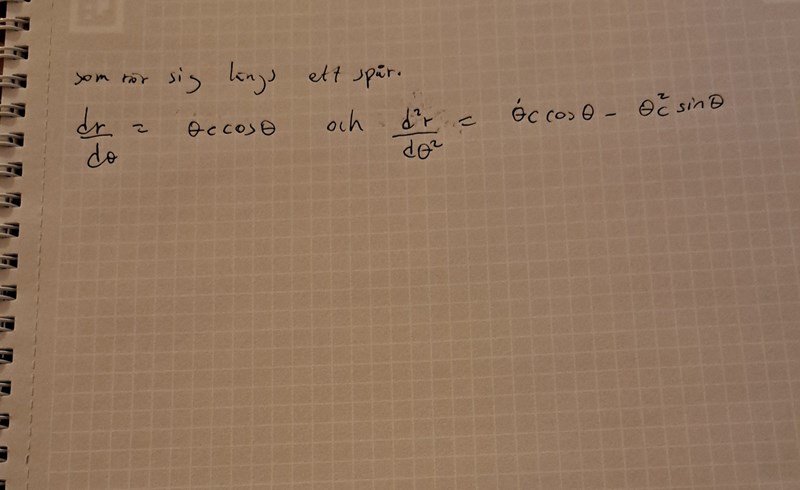 som rör sig längs ett spår.
dr/dθ = θc cosθ och d²r/dθ² = θ̇c cosθ - θc² sinθ